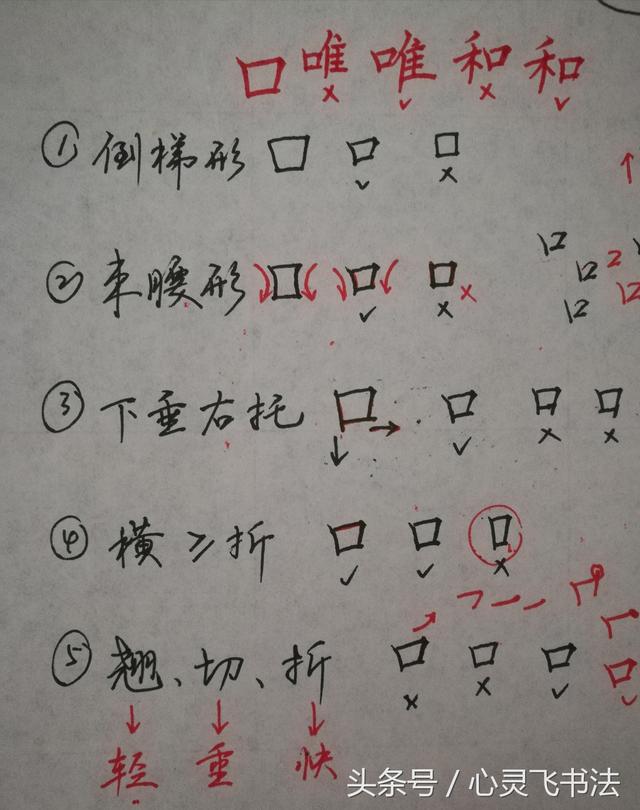 口 唯 唯 和 和
× ✓ × ✓
① 倒梯形 口 口 口
✓ ×
② 束腰形 口 口 口
✓ × ×
③ 下垂右托 口 口 口 口
✓ × ×
④ 横≥折 口 口 口
✓ ✓ ×
⑤ 翘、切、折 口 口 口 口
× × ✓ ✓
轻 重 快
头条号 / 心灵飞书法